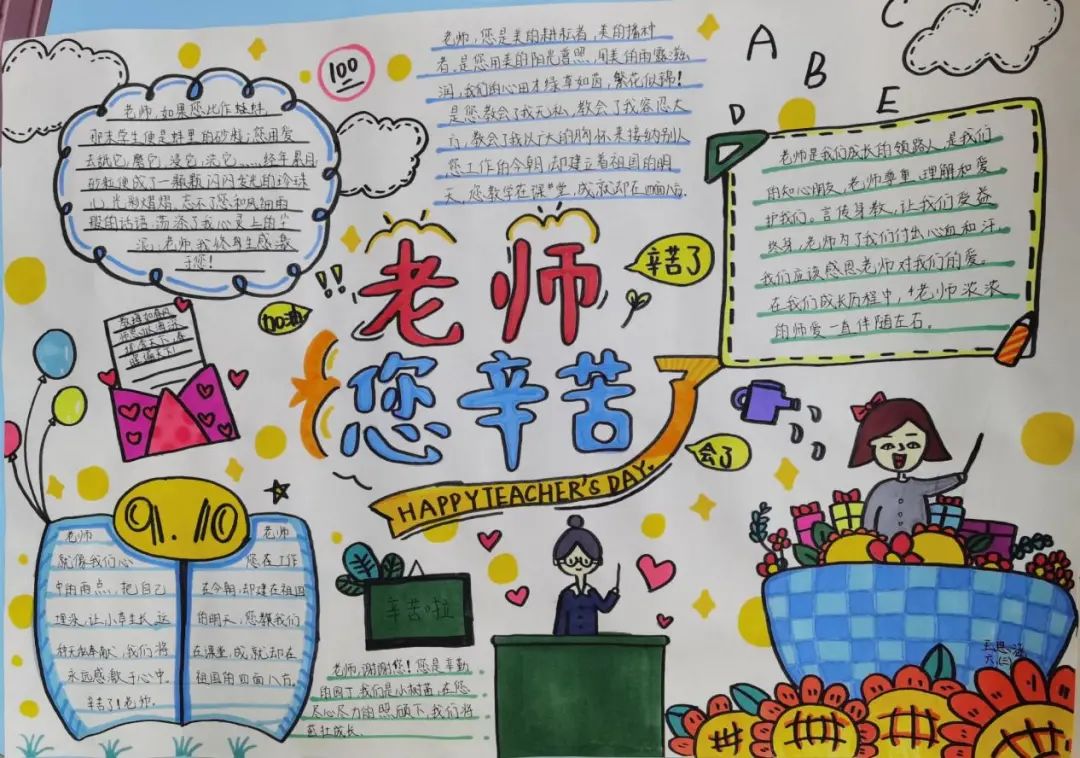 老师,如果您比作蚌蚌,
那末学生便是蚌里的砂粒;您用爱
去舐它,磨它,浸它,洗它……经年累月
砂粒便成了一颗颗闪闪发光的珍珠
儿,光彩熠熠。忘不了您和风细雨
般的话语,荡涤了我心灵上的尘
泥;老师,我终身生感激
于您!
100
老师,您是美的耕耘者,美的播种
者。是您用美的阳光普照,用美的雨露滋
润,我们的心田才绿草如茵,繁花似锦!
是您教会了我无私,教会了我容忍大
方,教会了我以广大的胸怀来接纳别人
您工作的今朝,却建立着祖国的明
天,您教学在课堂,成就却在四面八方。
A
B
C
D
E
老师是我们成长的领路人,是我们
的知心朋友,老师尊重、理解和爱
护我们。言传身教,让我们受益
终身,老师为了我们付出心血和汗。
我们应该感恩老师对我们的爱。
在我们成长历程中,老师浓浓
的师爱一直伴随左右。
!!
加油
辛苦了
老师
您辛苦了
会了
HAPPY TEACHER'S DAY.
9.10
老师
就像我们心
中的雨点,把自己
埋朵,让小草生长,这
种无私奉献心,我们将
永远感激于心中。
辛苦了!老师。
老师
您在工作
在今朝,却建在祖国
的明天,您教我们
在课堂,成就却在
祖国的四面八方。
辛苦啦
老师,谢谢您!您是辛勤
的园丁,我们是小树苗,在您
尽心尽力的照顾下,我们将
茁壮成长。
六(三)